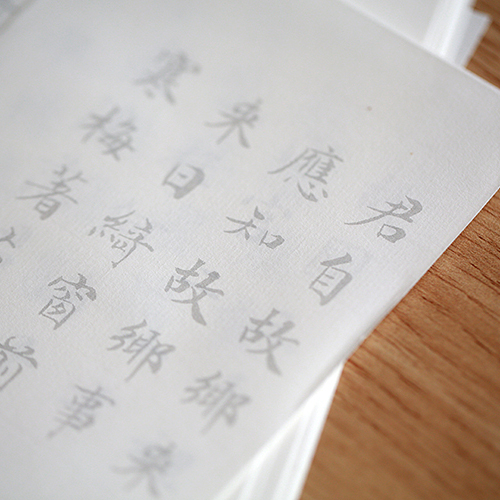 君自故鄉来
應知故鄉事
来日綺窗前
寒梅著